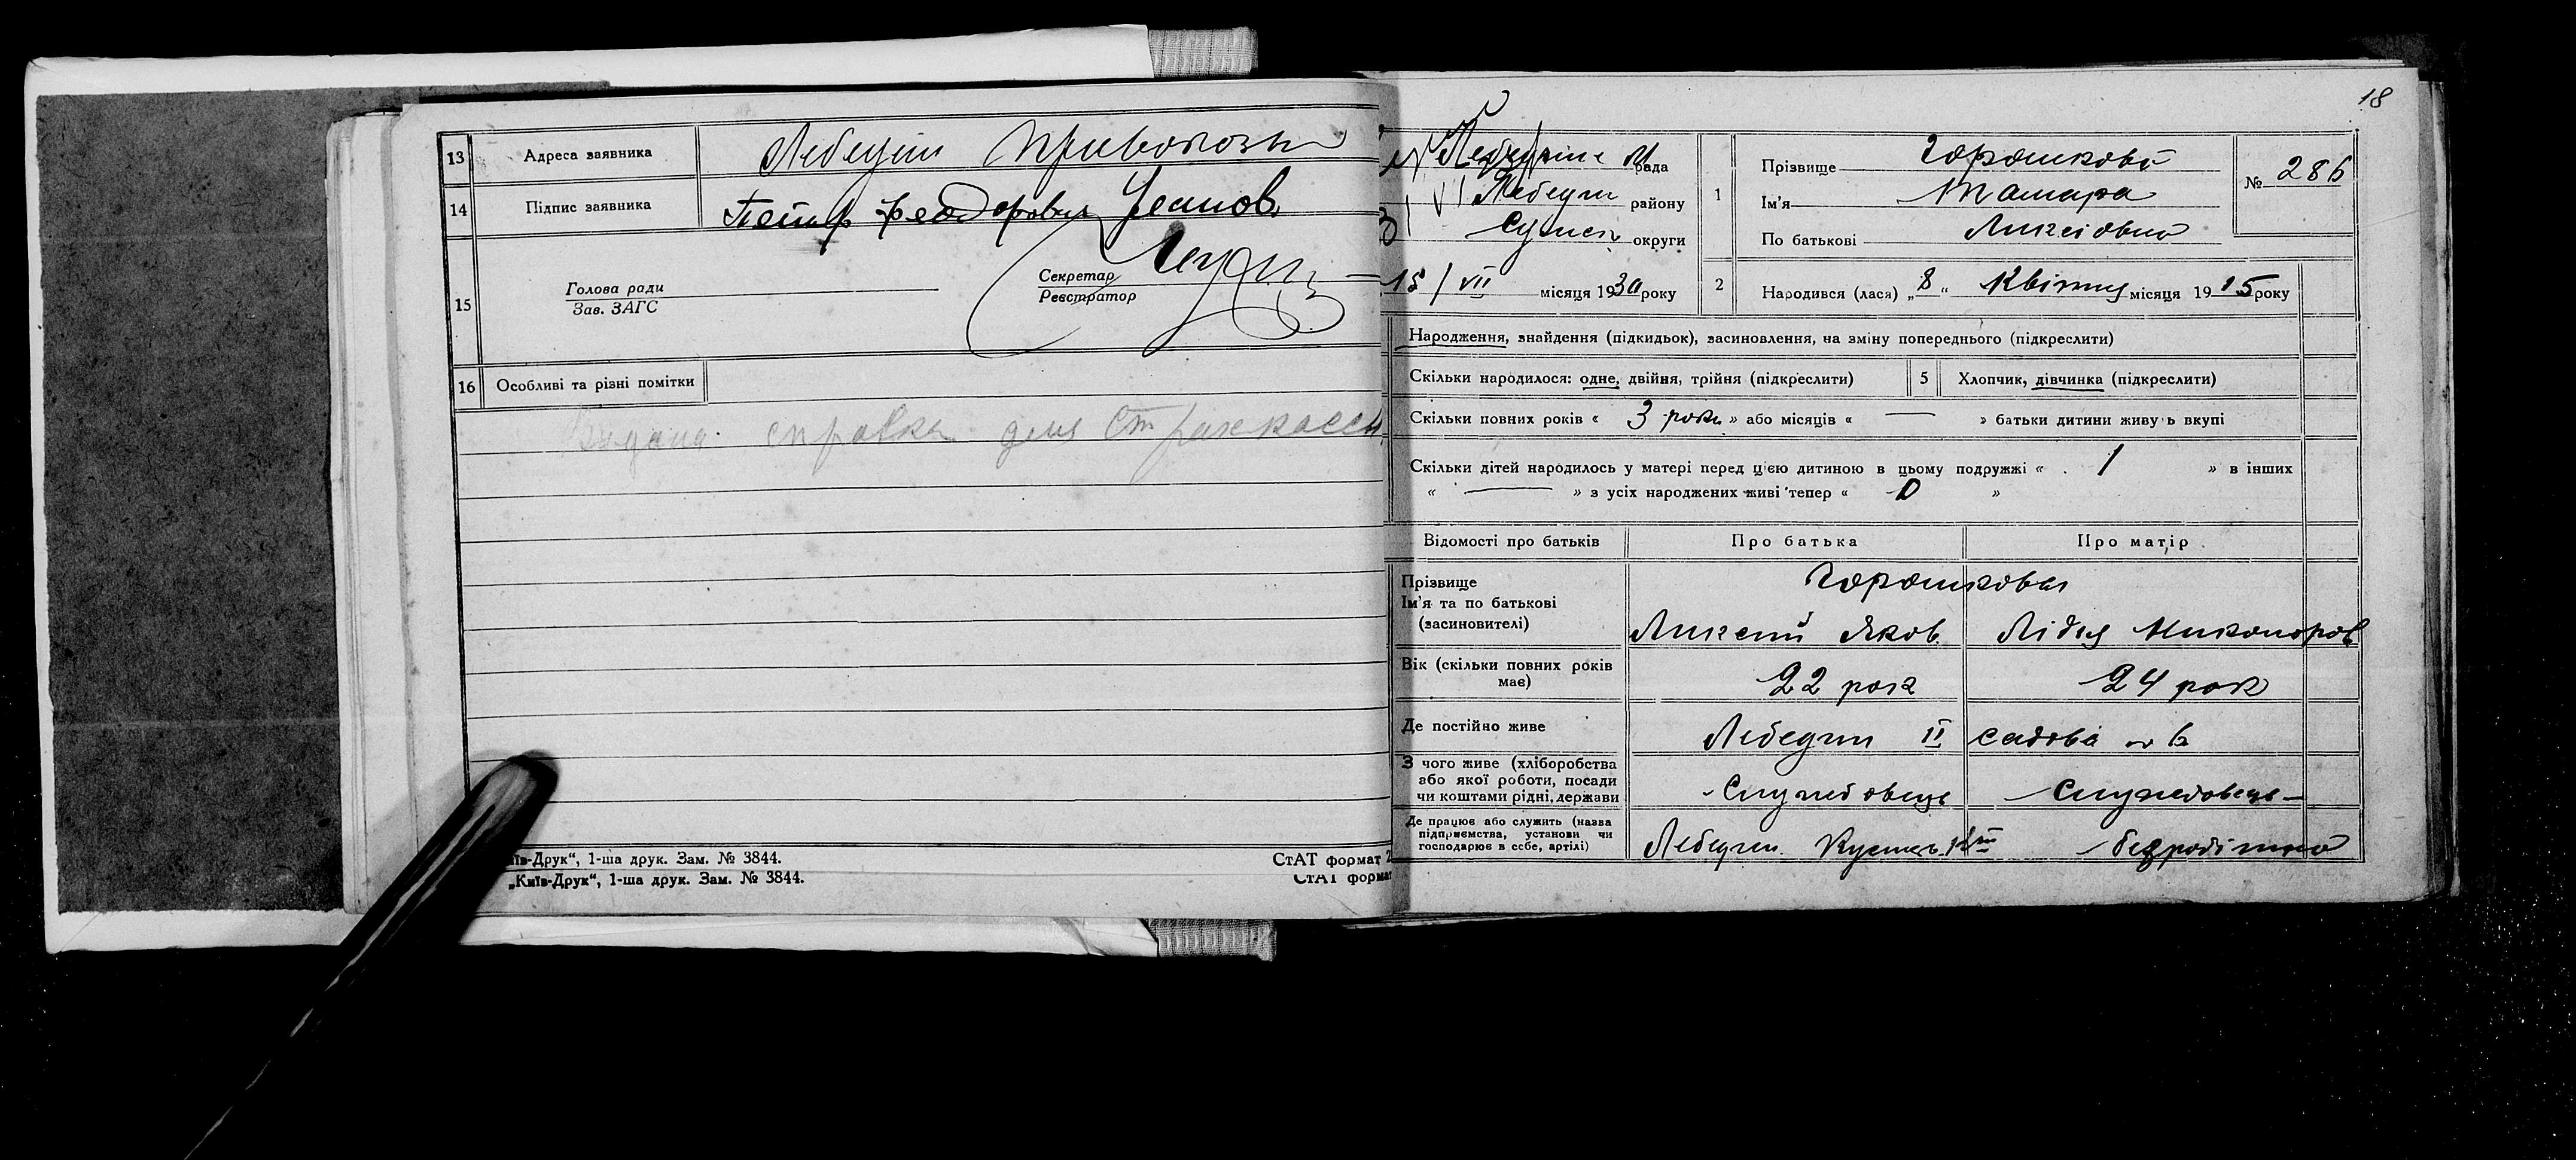 13 Адреса заявника Лебедин
14 Підпис заявника Петр Феодорович
15 Голова ради
Зав. ЗАГС
Секретар
Реєстратор
16 Особливі та різні помітки
Видана справка для Страхкассы
"Київ-Друк", 1-ша друк. Зам. № 3844.
СтАТ формат 2
„Київ-Друк“, 1-ша друк. Зам. № 3844.
СтАТ формат
18
рада
Лебедин району
Сумськ округи
15/VII місяця 1930 року
1
Прізвище Горошкова
Ім'я Тамара
По батькові
№ 286
2 Народився (лася) „8“ Квітня місяця 19 року
Народження, знайдення (підкидьок), засиновлення, на зміну попереднього (підкреслити)
Скільки народилося: одне, двійня, трійня (підкреслити)
5 Хлопчик, дівчинка (підкреслити)
Скільки повних років « 3 роки » або місяців « — » батьки дитини живуть вкупі
Скільки дітей народилось у матері перед цією дитиною в цьому подружжі « 1 » в інших
« — » з усіх народжених живі тепер « 0 »
Відомості про батьків
Про батька
Про матір
Прізвище
Ім'я та по батькові
(засновителі)
Горошковы
Яков.
Лідія Никоноров
Вік (скільки повних років
має)
22 рок
24 рок
Де постійно живе
Лебедин II садова № 6
З чого живе (хліборобства
або якої роботи, посади
чи коштами рідні, держави
Служебовець
Служебовець
Де працює або служить (назва
підприємства, установи чи
господарює в себе, артілі)
Лебедин
безробітна